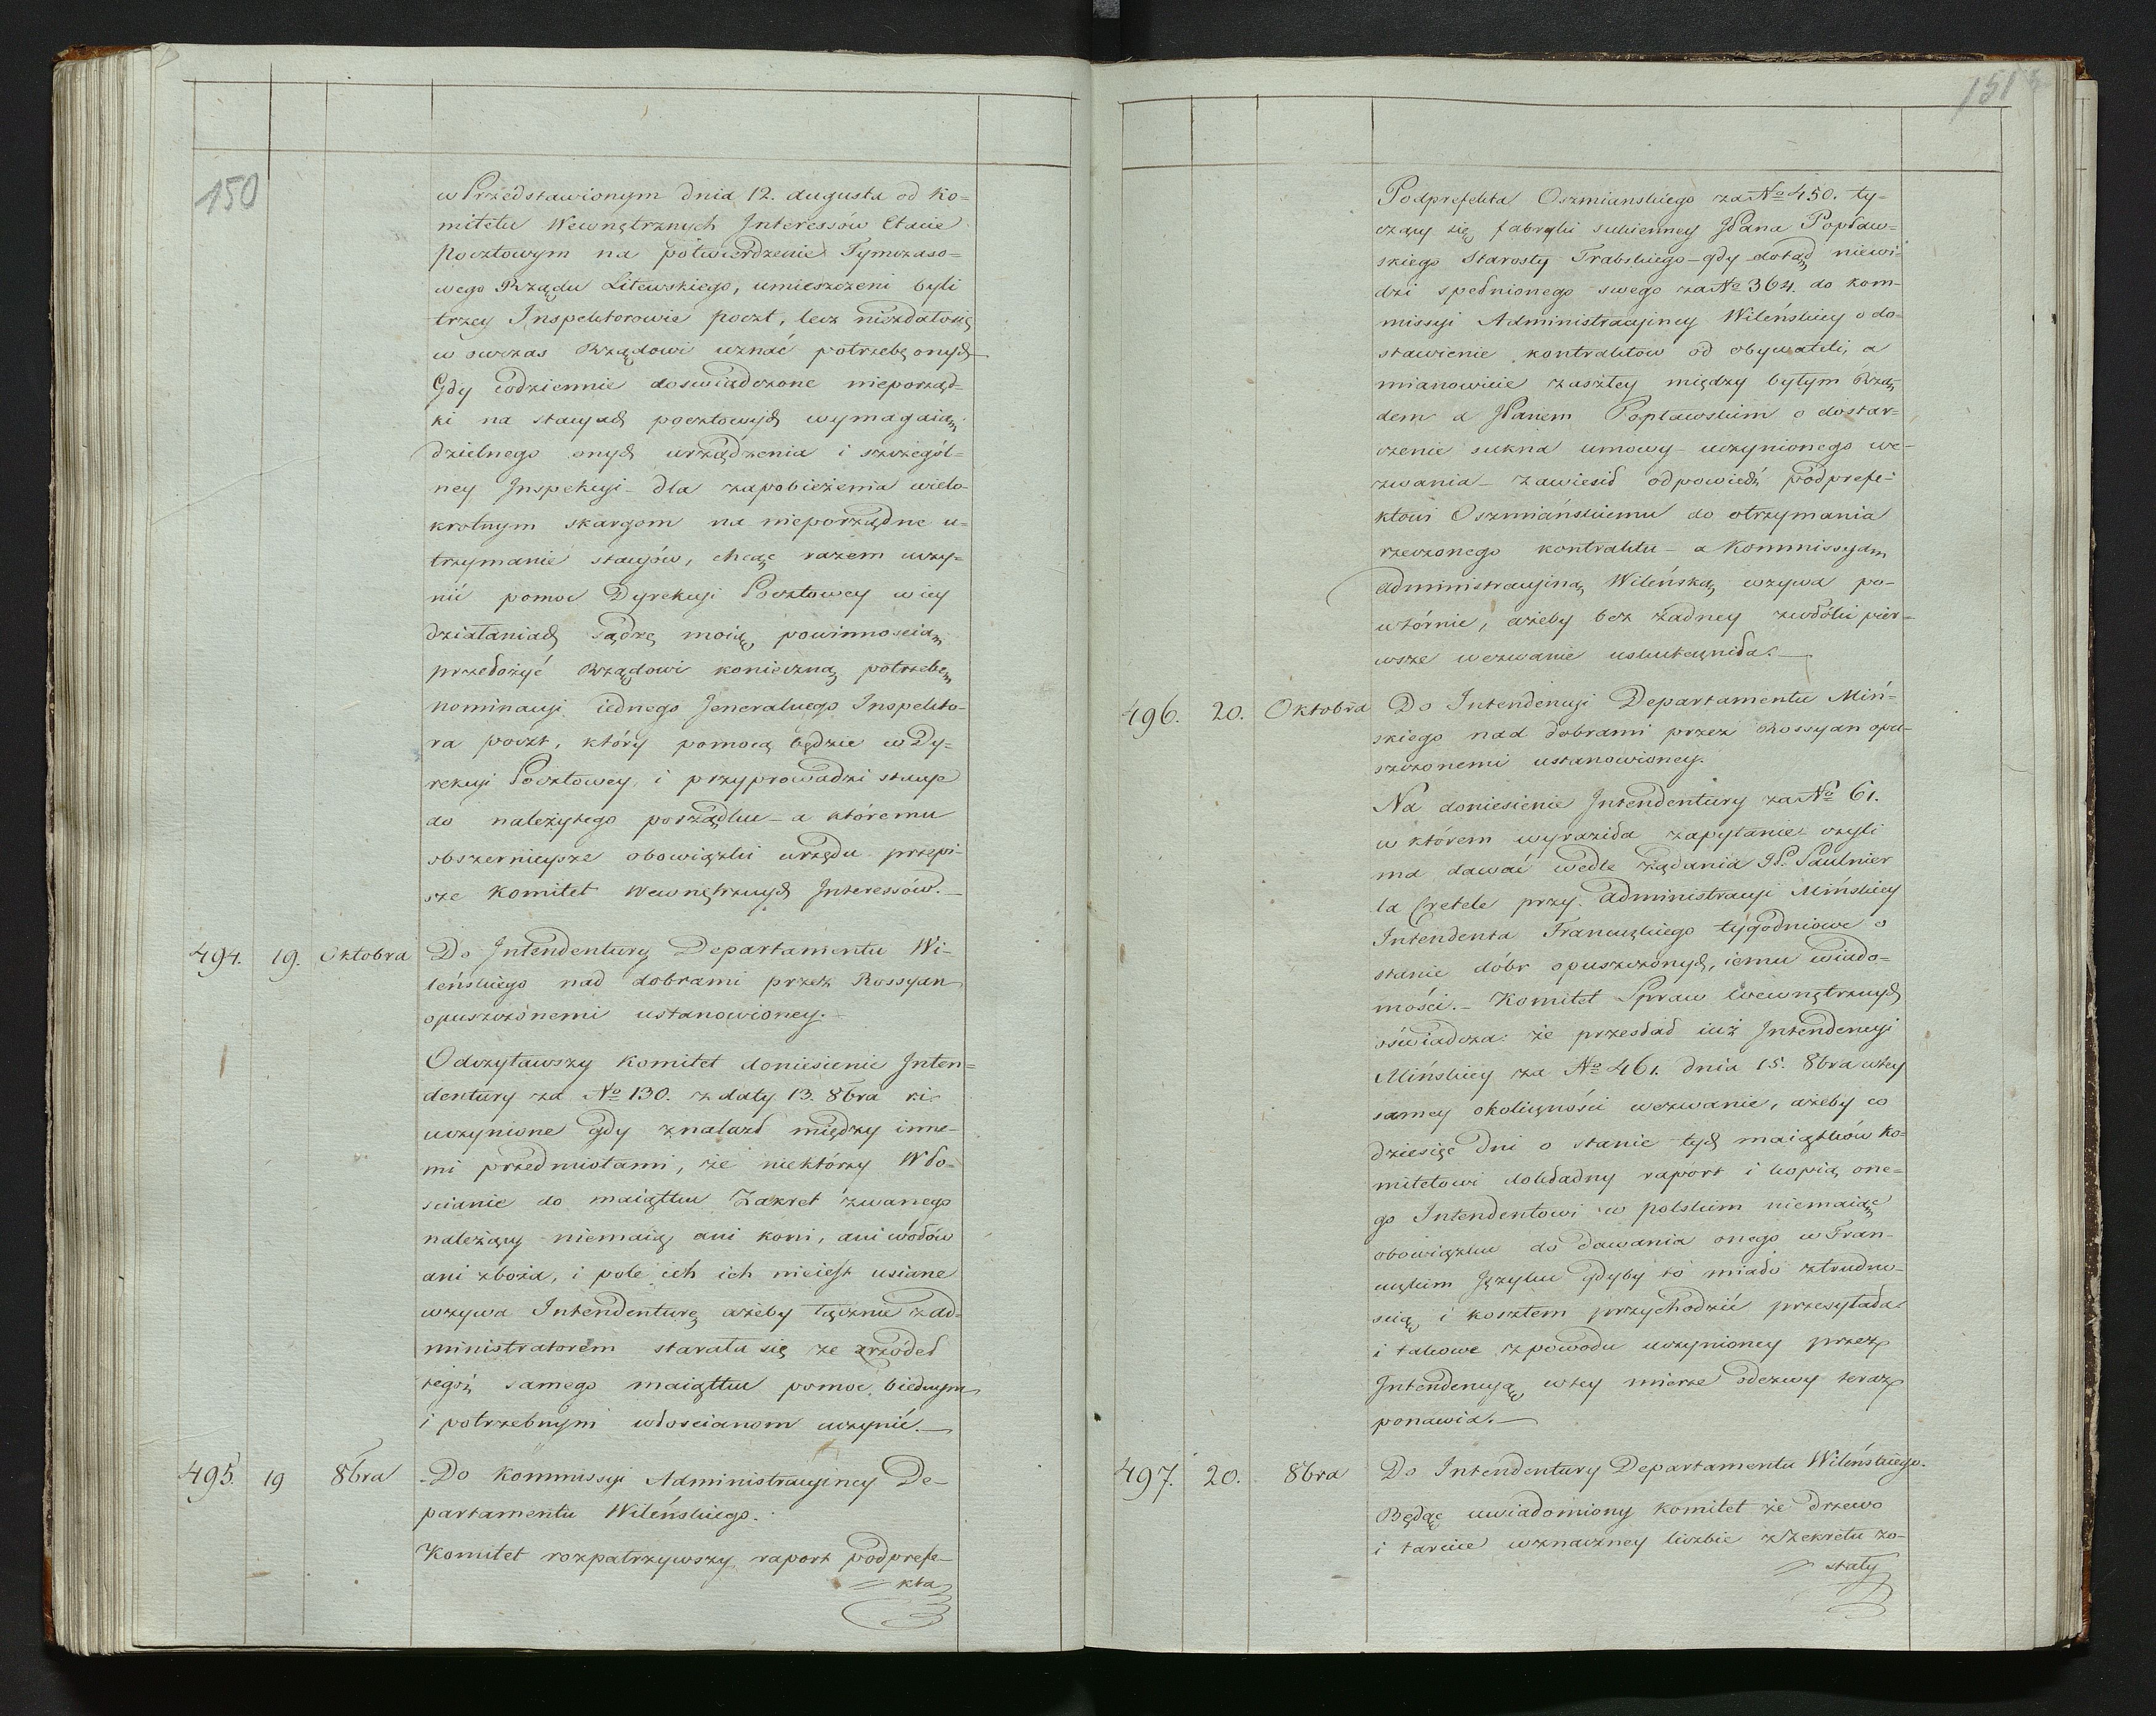 150
w Przedstawionym dnia 12. augusta od Ko=
mitetu Wewnętrznych Interessów Etacie
Pocztowym na potwierdzenie Tymczaso=
wego Rządu Litewskiego, umieszczeni byli
trzey Inspektorowie poczt, lecz niezdało się
w owczas Rządowi uznać potrzebę onych
Gdy codziennie doswiadczone nieporząd=
ki na stacyach pocztowych wymagaią
dzielnego onych urządzenia i szczegól=
ney Inspekcyi – dla zapobieżenia wielo
krotnym skargom na nieporządne u=
trzymanie stacyów, chcąc razem uczy=
nić pomoc Dyrekcyi Pocztowey w iey
działaniach sądzę moią powinnoscią
przełożyć Rządowi konieczną potrzebę
nominacyi iednego Jeneralnego Inspekto-
ra poczt, który pomocą będzie w Dy=
rekcyi Pocztowey, i przyprowadzi stacye
do należytego porządku – a któremu
obszernieysze obowiązki urzędu przepi-
sze Komitet Wewnętrznych Interessów. –
494. 19. Oktobra Do Intendentury Departamentu Wi-
leńskiego nad dobrami przez Rossyan
opuszczonemi ustanowioney. –
Odczytawszy Komitet doniesienie Inten=
dentury za No 130. z daty 13. 8bra r.
uczynione gdy znalazł między inne-
mi przedmiotami, że niektórzy Wło=
scianie do maiątku Zakret zwanego
należący niemaią ani koni, ani wołów
ani zboża, i pole ich ich nieiest usiane
wzywa Intendenturę ażeby łącznie z ad-
ministratorem starała się ze zrzódeł
tegoż samego maiątku pomoc biednym
i potrzebnym włoscianom uczynić. –
495. 19 8bra Do Kommissyi Administracyiney De-
partamentu Wileńskiego.
Komitet rozpatrzywszy raport podprefe-
kta
151
Podprefekta Oszmianskiego za No 450. ty-
czący się fabryki sukienney JPana Popław-
skiego Starosty Trabskiego – gdy dotąd niewi-
dzi spełnionego swego za No 364. do kom-
missyi Administracyiney Wileńskiey o do-
stawienie kontraktow od obywateli, a
mianowicie zaszłey między byłym Rzą-
dem a JPanem Popławskim o dostar-
czenie sukna umowy – uczynionego we-
zwania – zawiesił odpowiedź podprefe-
ktowi Oszmiańskiemu do otrzymania
rzeczonego kontraktu – a Kommissyą
administracyiną Wileńską wzywa po-
wtórnie, ażeby bez żadney zwłóki pier-
wsze wezwanie uskuteczniła. –
496. 20. Oktobra Do Intendencyi Departamentu Miń-
skiego nad dobrami przez Rossyan opu-
szczonemi ustanowioney.
Na doniesienie Intendentury za No 61.
w którem wyraziła zapytanie czyli
ma dawać wedle żądania JP. Saulnier
la Cretele przy Administracyi Mińskiey
Intendenta Francuzkiego tygodniowe o
stanie dóbr opuszczonych, iemu wiado=
mości. – Komitet Spraw Wewnętrznych
oświadcza: że przesłał iuż Intendencyi
Mińskiey za No 461. dnia 15. 8bra w tey
samey okoliczności wezwanie, ażeby co
dziesięć dni o stanie tych maiątków Ko-
mitetowi dokładny raport i kopią one-
go Intendentowi w polskim niemaiąc
obowiązku do dawania onego w Fran-
cuzkim Języku gdyby to miało z trudno-
scią i kosztem przychodzić przesyłała
i takowe z powodu uczynioney przez
Intendencyą w tey mierze odezwy teraz
ponawia. –
497. 20. 8bra Do Intendentury Departamentu Wileńskiego.
Będąc uwiadomiony Komitet że drzewo
i tarcice w znaczney liczbie z Zekretu zo-
stały